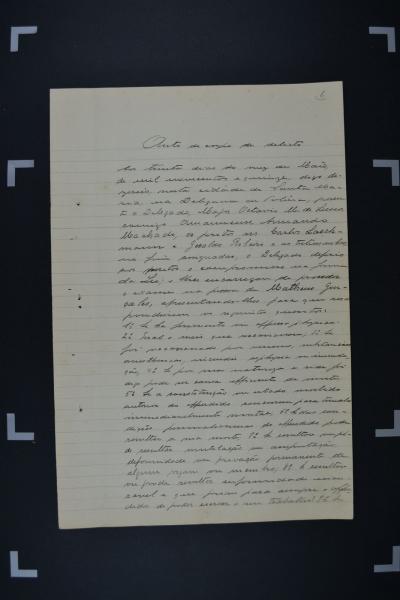 Auto de corpo de delicto
Aos trinta dias do mez de Maio
de mil novecentos e quinze, digo
nesta cidade de Santa Ma-
ria, na Delegacia de Policia, presen-
te o Delegado, Major Octavio
commigo Amanuense Armando
Machado, os peritos srs. Carlos
e as testemunhas
no fim assignadas, o Delegado deferio
aos peritos o compromisso na forma
da Lei, e lhes encarregou de proceder
o exame na pessoa de Matheus Gon-
çales, apresentando-lhes para que res-
ponderem os seguintes quesitos:
1º Se ha ferimento ou offensa physica;
2º Qual o meio que occasionou; 3º Se
foi occasionado por veneno, substancias
anesthesicas, incendio, asphyxia ou inunda-
ção; 4º Se por sua natureza e séde foi
digo pode ser causa efficiente da morte;
5º Se a constituição ou estado morbido
anterior do offendido concorrem para tornal-o
irremediavelmente mortal; 6º Se das con-
dições personalissimas do offendido pode
resultar a sua morte; 7º Se resultou ou pode
resultar mutilação ou amputação,
deformidade ou privação permanente de
algum orgam ou membro; 8º Se resultou
ou pode resultar enfermidade incu-
ravel e que prive para sempre o offen-
dido de poder exercer o seu trabalho; 9º Se